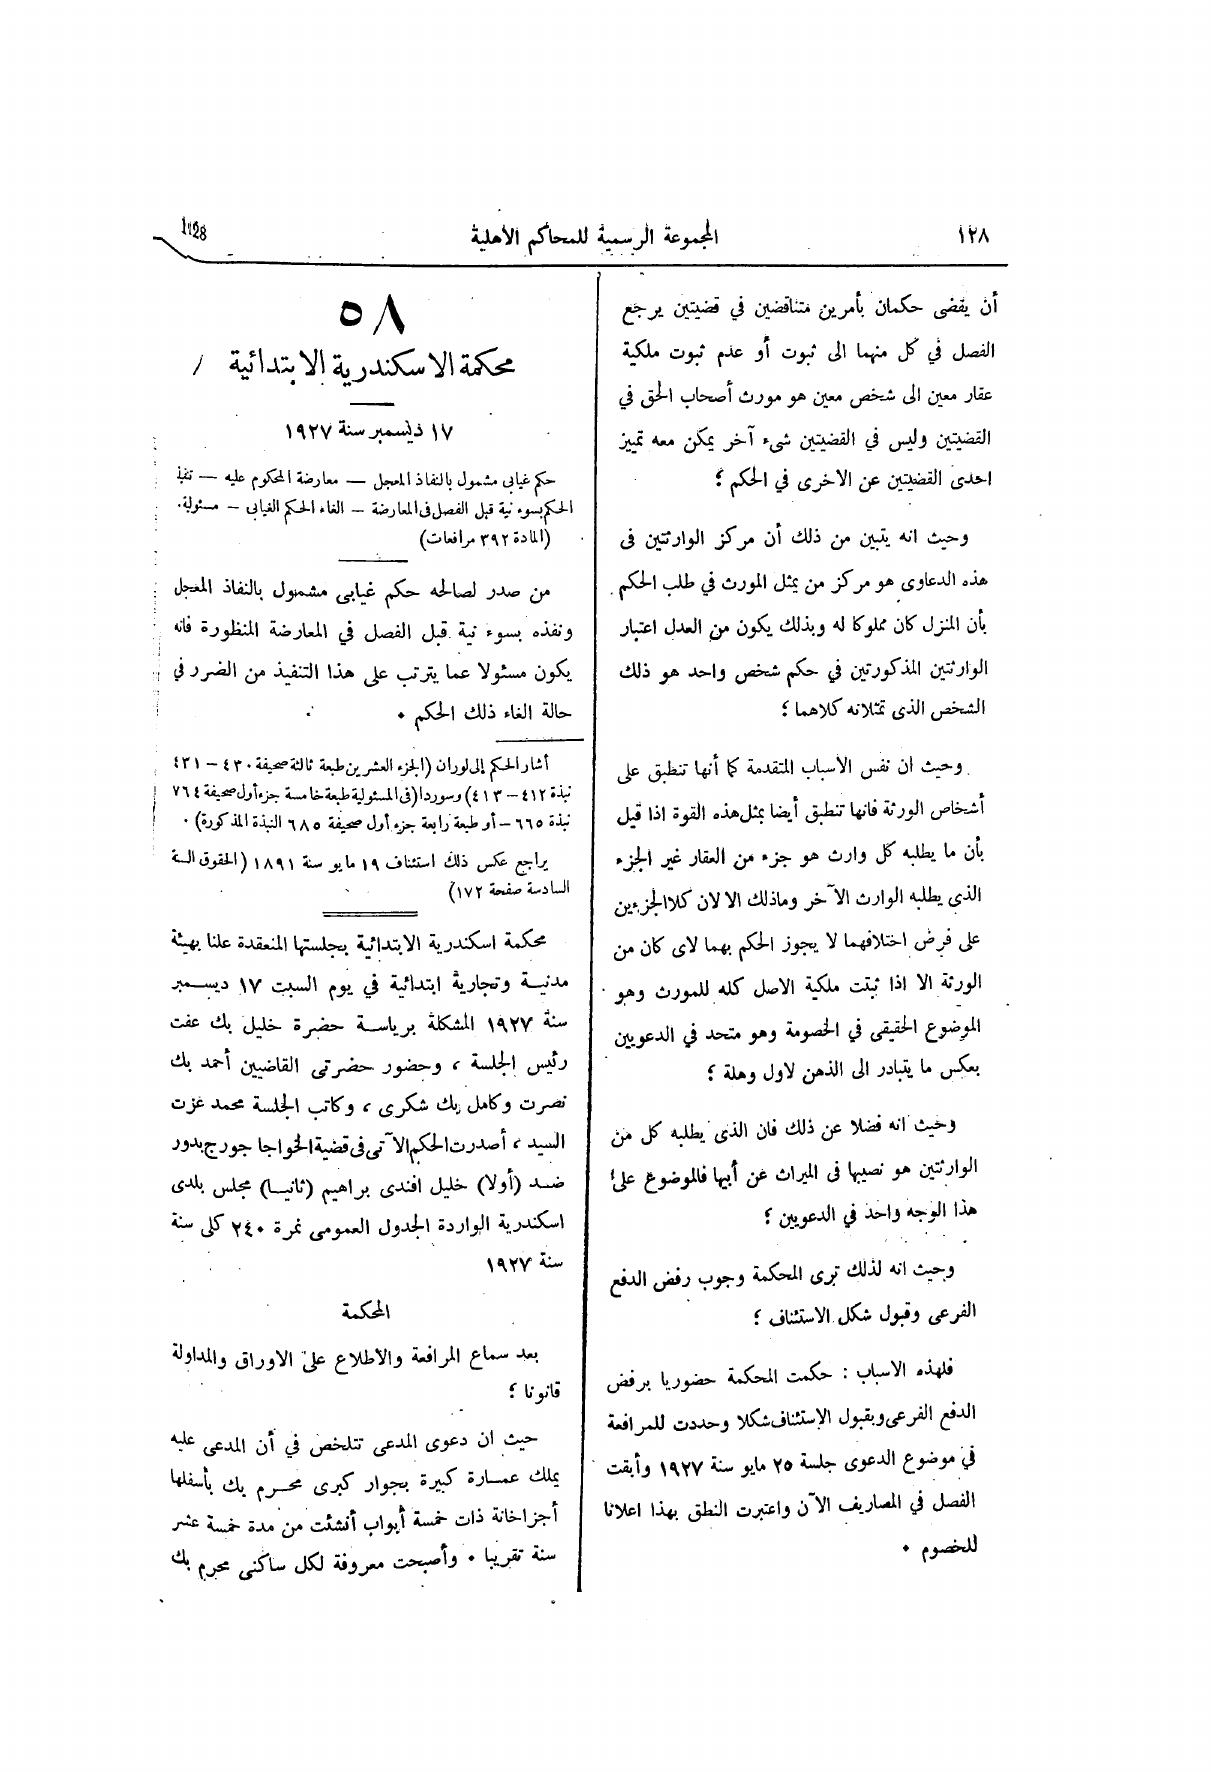 ١٢٨
المجموعة الرسمية للمحاكم الأهلية
128
أن يقضى حكمان بأمرين متناقضين في قضيتين يرجع
الفصل في كل منهما الى ثبوت أو عدم ثبوت ملكية
عقار معين الى شخص معين هو مورث أصحاب الحق في
القضيتين وليس في القضيتين شيء آخر يمكن معه تمييز
احدى القضيتين عن الاخرى في الحكم ؛
وحيث انه يتبين من ذلك أن مركز الوارثتين فى
هذه الدعاوى هو مركز من يمثل المورث في طلب الحكم
بأن المنزل كان مملوكا له وبذلك يكون من العدل اعتبار
الوارثتين المذكورتين في حكم شخص واحد هو ذلك
الشخص الذى تمثلانه كلاهما ؛
وحيث ان نفس الأسباب المتقدمة كما أنها تنطبق على
أشخاص الورثة فانها تنطبق أيضا بمثل هذه القوة اذا قيل
بأن ما يطلبه كل وارث هو جزء من العقار غير الجزء
الذى يطلبه الوارث الآخر وماذلك الا لان كلا الجزءين
على فرض اختلافهما لا يجوز الحكم بهما لاى كان من
الورثة الا اذا ثبتت ملكية الاصل كله للمورث وهو
الموضوع الحقيقى في الخصومة وهو متحد في الدعويين
بعكس ما يتبادر الى الذهن لاول وهلة ؛
وحيث انه فضلا عن ذلك فان الذى يطلبه كل من
الوارثتين هو نصيبها فى الميراث عن أبيها فالموضوع على
هذا الوجه واحد في الدعويين ؛
وحيث انه لذلك ترى المحكمة وجوب رفض الدفع
الفرعى وقبول شكل الاستئناف ؛
فلهذه الاسباب : حكمت المحكمة حضوريا برفض
الدفع الفرعى وبقبول الاستئناف شكلا وحددت للمرافعة
في موضوع الدعوى جلسة ٢٥ مايو سنة ١٩٢٧ وأبقت
الفصل في المصاريف الآن واعتبرت النطق بهذا اعلانا
للخصوم .
٥٨
محكمة الاسكندرية الابتدائية
١٧ ديسمبر سنة ١٩٢٧
حكم غيابى مشمول بالنفاذ المعجل — معارضة المحكوم عليه — تنفيذ
الحكم بسوء نية قبل الفصل فى المعارضة — الغاء الحكم الغيابى — مسئولية.
(المادة ٣٩٢ مرافعات)
من صدر لصالحه حكم غيابى مشمول بالنفاذ المعجل
ونفذه بسوء نية قبل الفصل في المعارضة المنظورة فانه
يكون مسئولا عما يترتب على هذا التنفيذ من الضرر في
حالة الغاء ذلك الحكم .
أشار الحكم إلى لوران (الجزء العشرين طبعة ثالثة صحيفة ٤٣٠ — ٤٣١
نبذة ٤١٢ — ٤١٣) وسوردا (فى المسئولية طبعة خامسة جزء أول صحيفة ٧٦٤
نبذة ٦٦٥ — أو طبعة رابعة جزء أول صحيفة ٦٨٥ النبذة المذكورة) .
يراجع عكس ذلك استئناف ١٩ مايو سنة ١٨٩١ (الحقوق السنة
السادسة صفحة ١٧٢)
محكمة اسكندرية الابتدائية بجلستها المنعقدة علنا بهيئة
مدنيـة وتجارية ابتدائية في يوم السبت ١٧ ديسـمبر
سنة ١٩٢٧ المشكلة برياسـة حضرة خليل بك عفت
رئيس الجلسة ، وحضور حضرتى القاضيين أحمد بك
نصرت وكامل بك شكرى ، وكاتب الجلسة محمد عزت
السيد ، أصدرت الحكم الآتى فى قضية الخواجا جورج بدور
ضـد (أولا) خليل افندى براهيم (ثانيـا) مجلس بلدى
اسكندرية الواردة الجدول العمومى نمرة ٢٤٠ كلى سنة
سنة ١٩٢٧
المحكمة
بعد سماع المرافعة والاطلاع على الاوراق والمداولة
قانونا ؛
حيث ان دعوى المدعى تتلخص في أن المدعى عليه
يملك عمـارة كبيرة بجوار كبرى محـرم بك بأسفلها
أجزاخانة ذات خمسة أبواب أنشئت من مدة خمسة عشر
سنة تقريبا . وأصبحت معروفة لكل ساكنى محرم بك